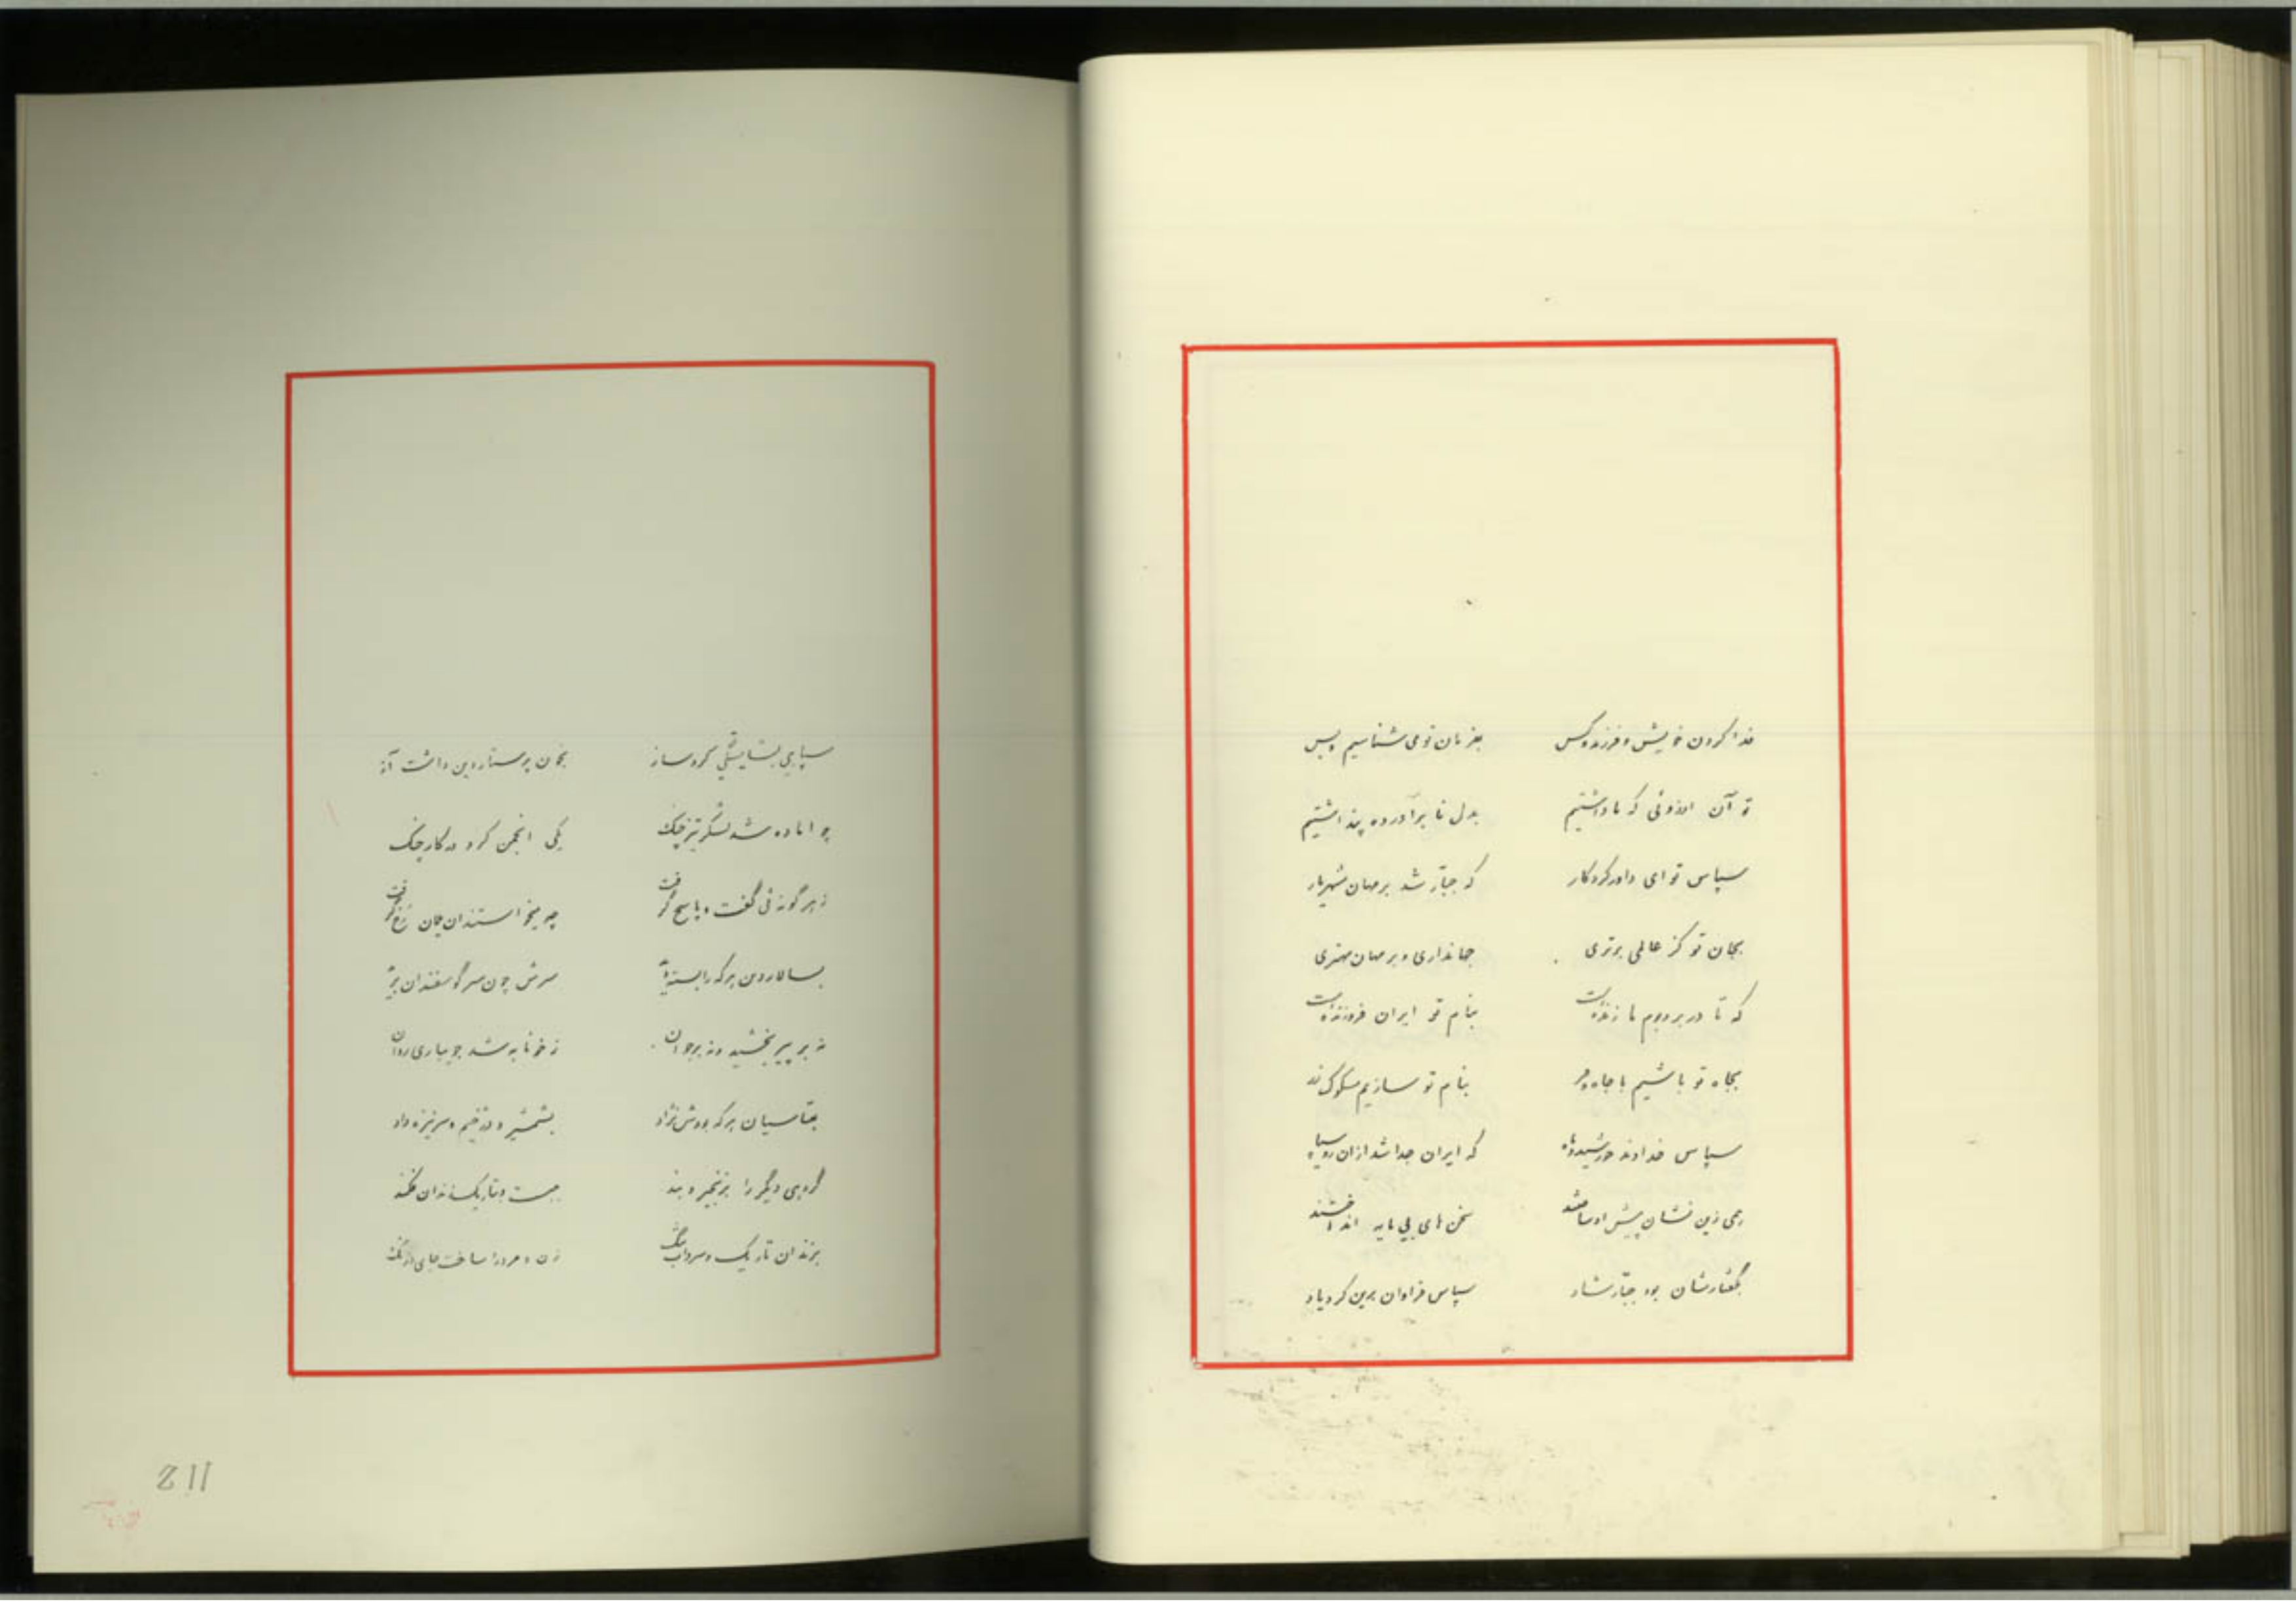 فدا کردن خویش و فرزند و کس بفرمان تو می شناسیم و بس
تو آن افزونی که ما داشتیم بدل تا برآورده پنداشتیم
سپاس تو ای داور کردگار که جبار شد بر مهان شهریار
بجان تو کز عالمی برتری جهانداری و بر مهان مهتری
که تا در بر و بوم ما زنده است بنام تو ایران فروزنده است
بجاه تو باشیم با جاه و فر بنام تو سازیم مسکوک زر
سپاس خداوند خورشید و ماه که ایران جدا شد ازان رو سیاه
همی زین نشان پیش او ساختند سخن های بی مایه انداختند
بگفتارشان بود جبار شاد سپاس فراوان برین کرد یاد
سپاهی بشایستگی کرد ساز بخون پرستار دین داشت آز
چو آماده شد لشکر تیز چنگ یکی انجمن کرد در کار جنگ
ز هر گونه ئی گفت و پاسخ گرفت چه میخواست زان همان رخ گرفت
بسالار دین هر که را بسته دید سرش چون سر گوسفندان برید
نه بر پیر بخشید و نه بر جوان ز خونابه شد جویباری روان
بعباسیان هر که بودش نژاد بشمشیر و دژخیم و سر نیزه داد
گروهی دیگر را بزنجیر و بند ببست و بتاریک زندان فکند
بزندان تاریک و سرداب تنگ زن و مرد را ساخت جای درنگ
211